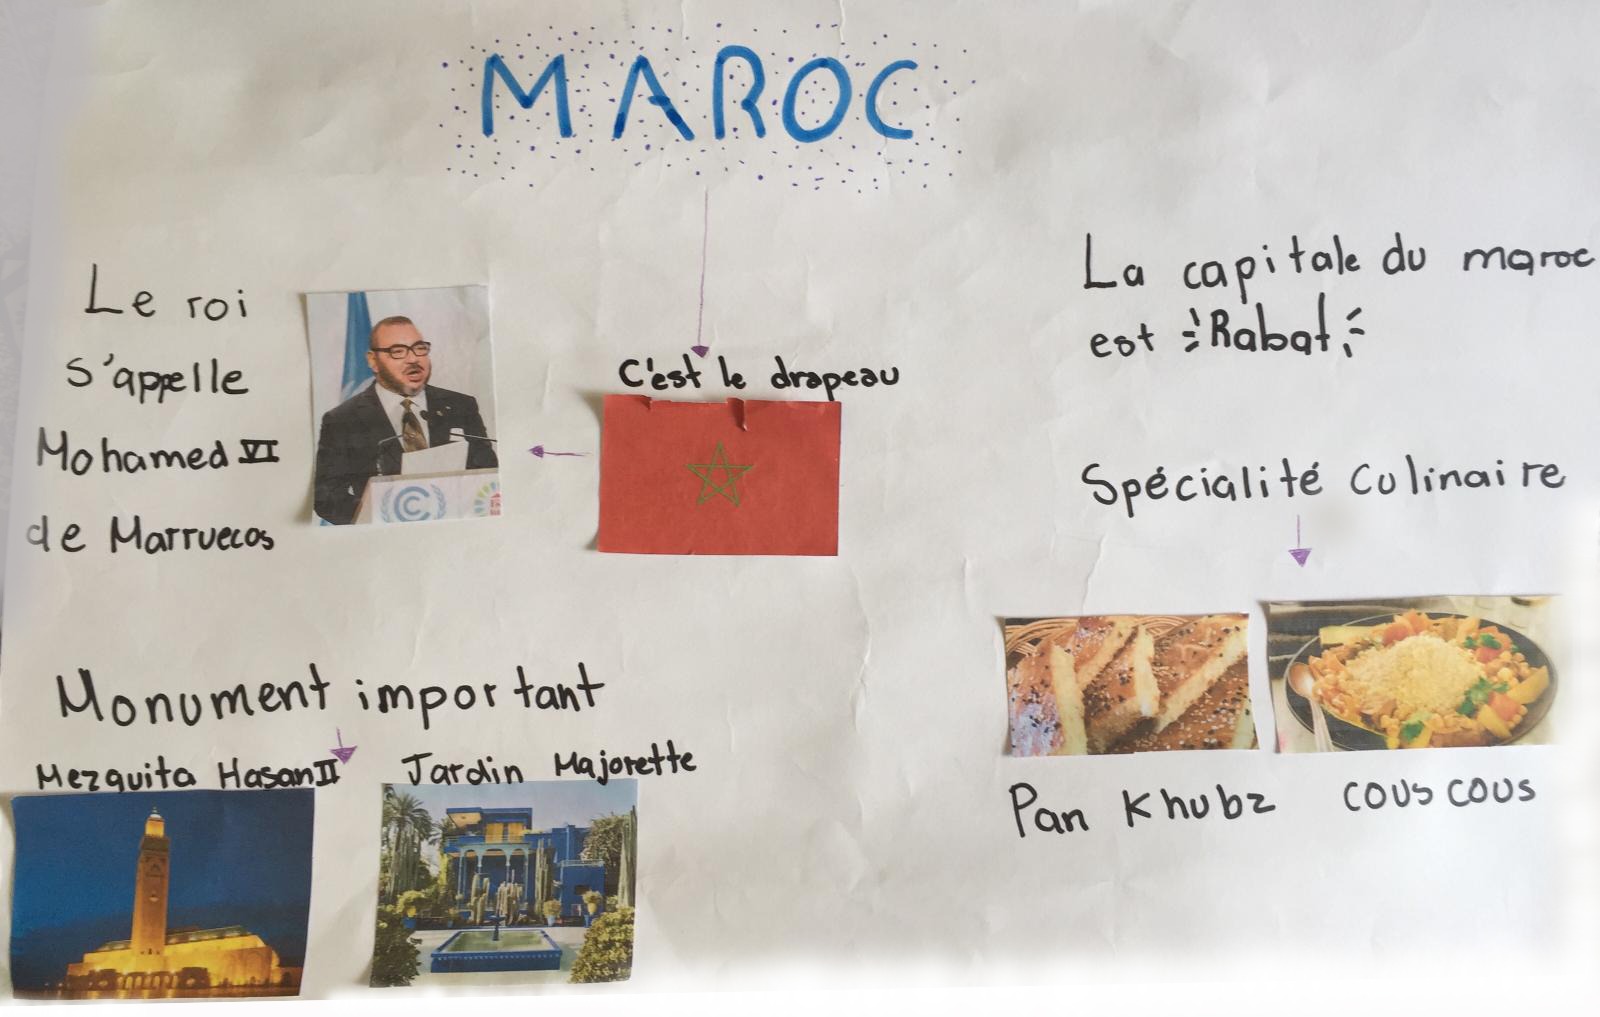 MAROC
Le roi
s'appelle
Mohamed VI
de Marruecos
C'est le drapeau
La capitale du maroc
est Rabat
Spécialité culinaire
Pan Khubz
couscous
Monument important
Mezquita Hasan II
Jardin Majorette